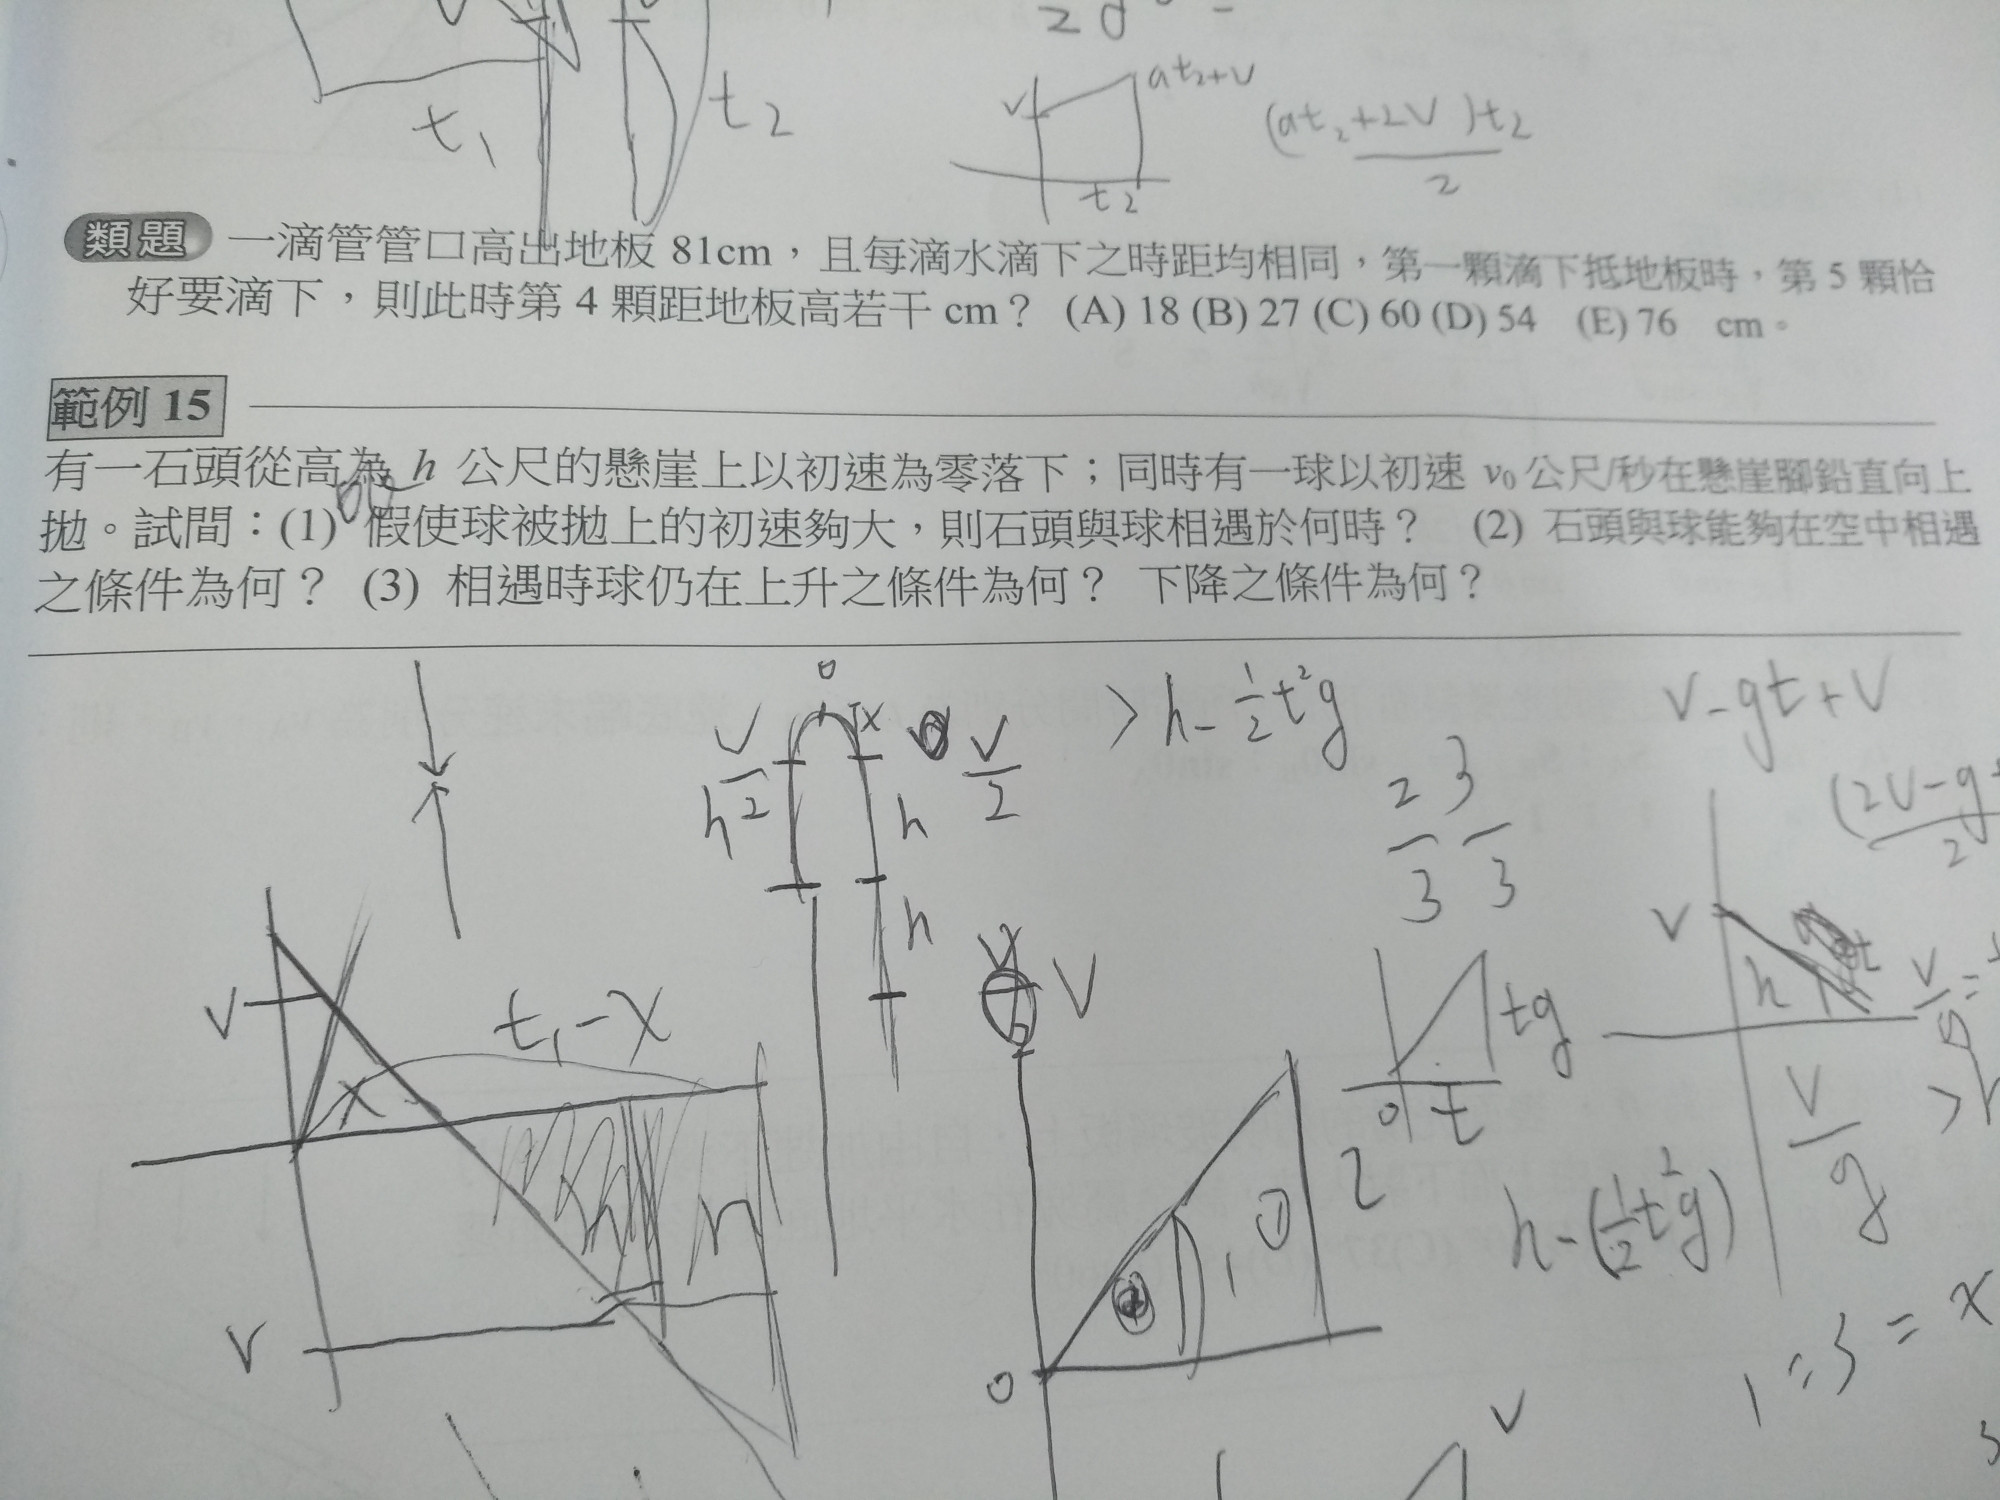 t₁
t₂
v
at₂+v
t₂
(at₂+2v)t₂
2
類題 一滴管管口高出地板 81cm，且每滴水滴下之時距均相同，第一顆滴下抵地板時，第 5 顆恰
好要滴下，則此時第 4 顆距地板高若干 cm？ (A) 18 (B) 27 (C) 60 (D) 54 (E) 76 cm。
範例 15
有一石頭從高為 h 公尺的懸崖上以初速為零落下；同時有一球以初速 v₀ 公尺/秒在懸崖腳鉛直向上
拋。試問：(1) 假使球被拋上的初速夠大，則石頭與球相遇於何時？ (2) 石頭與球能夠在空中相遇
之條件為何？ (3) 相遇時球仍在上升之條件為何？ 下降之條件為何？
> h - ½t²g
v-gt+v
v/2
h
x
v/2
h
h
v
v
t₁-x
x
h
v
0
1
2 3
3 3
tg
0 t
2
h-(½t²g)
v
h
v/g
1:3=x
v